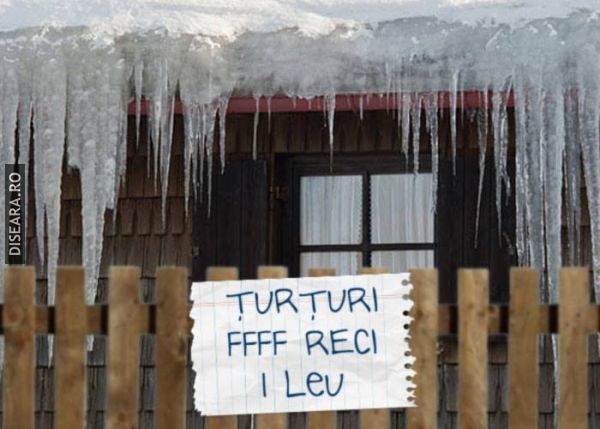 DISEARA.RO
ȚURȚURI
FFFF RECI
1 Leu